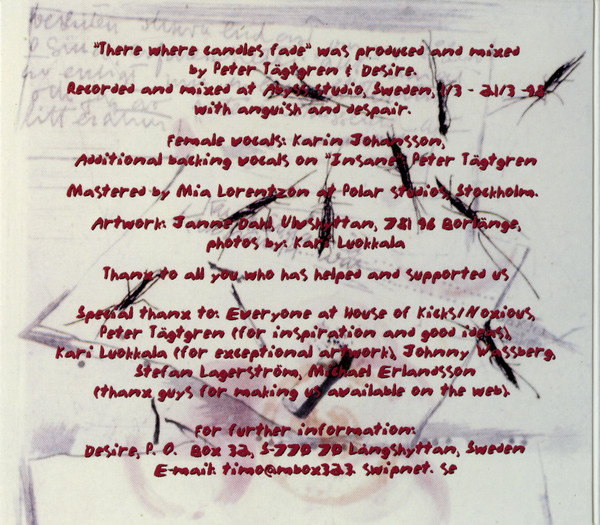 beslutet
"There where candles fade" was produced and mixed
by Peter Tägtgren & Desire.
Recorded and mixed at Abyss studio, Sweden, 1/3 - 21/3 -98
with anguish and despair.
Female vocals: Karin Johansson,
Additional backing vocals on "Insane" Peter Tägtgren
Mastered by Mia Lorentzon at Polar studios, Stockholm.
Artwork: Janne Dahl, Ulvshyttan, 781 96 Borlänge,
photos by: Kari Luokkala
Thanx to all you who has helped and supported us
Special thanx to: Everyone at House of Kicks/Noxious,
Peter Tägtgren (for inspiration and good ideas),
Kari Luokkala (for exceptional artwork), Johnny Wassberg,
Stefan Lagerström, Michael Erlandsson
(thanx guys for making us available on the web).
For further information:
Desire, P. O. Box 32, S-770 70 Långshyttan, Sweden
E-mail: timo@mbox323. swipnet. se